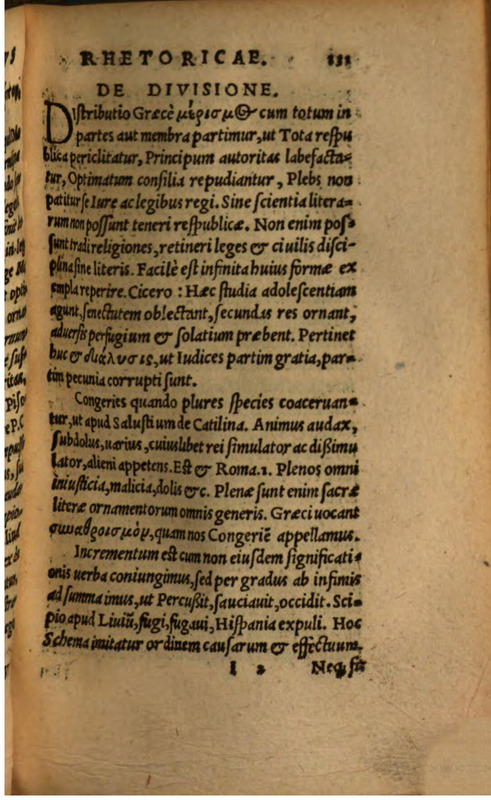 RHETORICAE. 131
DE DIVISIONE.
Distributio Græcè μέρισμ⊕ cum totum in
partes aut membra partimur, ut Tota respu
blica periclitatur, Principum autoritas labefacta-
tur, Optimatum consilia repudiantur, Plebs non
patitur se Iure ac legibus regi. Sine scientia litera-
rum non possunt teneri respublicæ. Non enim pos-
sunt tradi religiones, retineri leges & ciuilis disci-
plina sine literis. Facilè est infinita huius formæ ex
empla reperire. Cicero : Hæc studia adolescentiam
agunt, senectutem oblectant, secundas res ornant,
aduersis perfugium & solatium præbent. Pertinet
huc & διάλυσις, ut Iudices partim gratia, par-
tim pecunia corrupti sunt.
Congeries quando plures species coaceruan-
tur, ut apud Salustium de Catilina. Animus audax,
subdolus, uarius, cuiuslibet rei simulator ac dißimu
lator, alieni appetens. Est & Roma.1. Plenos omni
iniusticia, malicia, dolis &c. Plenæ sunt enim sacræ
literæ ornamentorum omnis generis. Græci uocant
συναθροισμὸν, quam nos Congeriē appellamus.
Incrementum est cum non eiusdem significati-
onis uerba coniungimus, sed per gradus ab infimis
ad summa imus, ut Percußit, sauciauit, occidit. Sci-
pio apud Liuiū, fugi, fugaui, Hispania expuli. Hoc
Schema imitatur ordinem causarum & effectuum.
I 2 Neq; fit